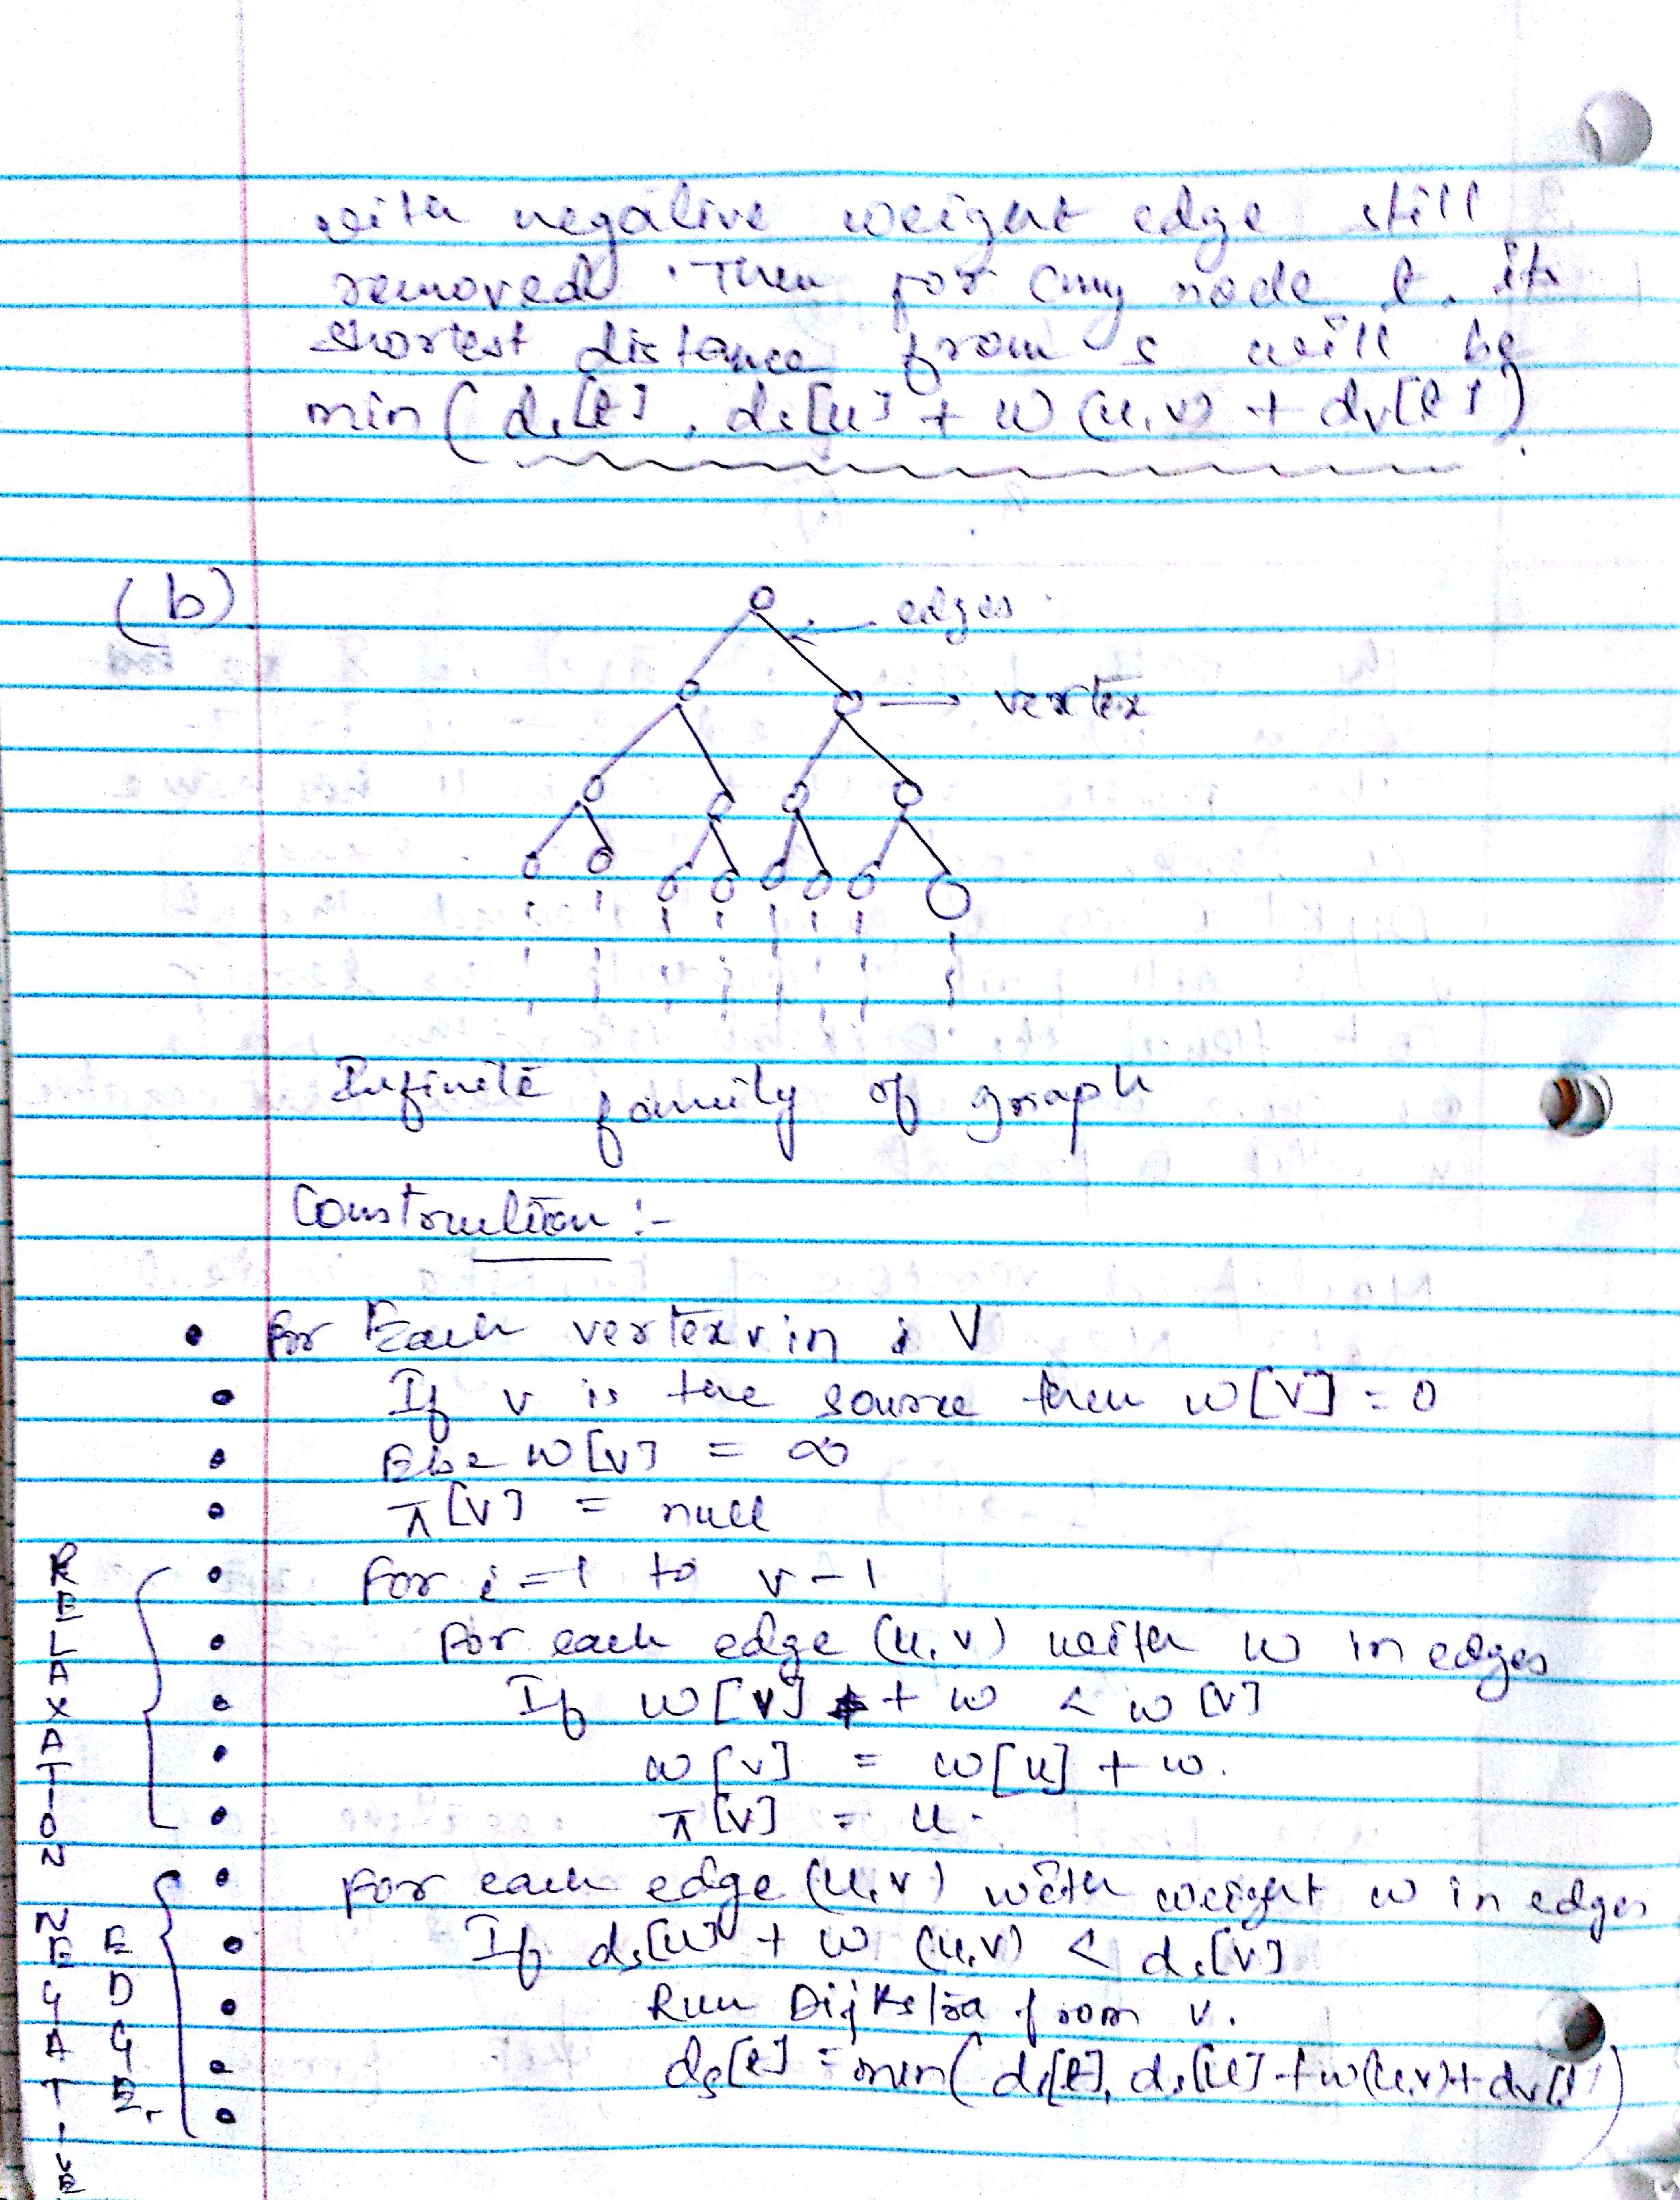 with negative weight edge still
removed. Then for any node t. its
shortest distance from s will be
min ( ds[t], ds[u] + w (u,v) + dv[t] ).
(b)
edges
vertex
Infinite family of graph
Construction :-
• for Each vertex v in V
• If v is the source then w[v] = 0
• Else w[v] = ∞
• π[v] = null
• for i = 1 to v-1
• for each edge (u,v) with w in edges
• If w[v] + w < w[v]
• w[v] = w[u] + w.
• π[v] = u.
• for each edge (u,v) with weight w in edges
• If ds[u] + w (u,v) < ds[v]
• Run Dijkstra from v.
• ds[t] = min( ds[t], ds[u] + w(u,v) + dv[t] )
•
RELAXATION
NEGATIVE
EDGE.